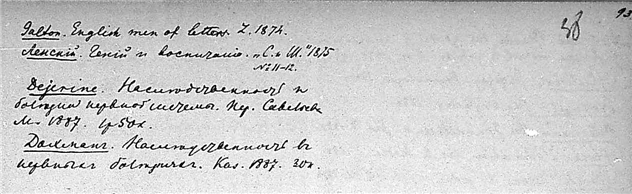 93
38
Galton. English men of letters. L. 1874.
Ленский. Гений и воспитание. „С. и Ш." 1875
№ 11-12.
Dejerine. Наследственность и
болезни нервной системы. Пер. Савельева
М. 1887. 1р 50к.
Даллманг. Наследственность в
нервных болезнях. Каз. 1887. 30к.